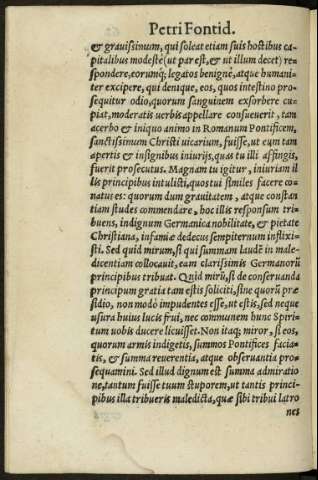 Petri Fontid.
& grauissimum, qui soleat etiam suis hostibus ca-
pitalibus modestè (ut par est, & ut illum decet) re-
spondere, eorumq; legatos benignè, atque humani-
ter excipere, qui denique, eos, quos intestino pro-
sequitur odio, quorum sanguinem exsorbere cu-
piat, moderatis uerbis appellare consueuerit, tam
acerbo & iniquo animo in Romanum Pontificem,
sanctissimum Christi uicarium, fuisse, ut eum tam
apertis & insignibus iniurijs, quas tu illi affingis,
fuerit prosecutus. Magnam tu igitur, iniuriam il
lis principibus intulisti, quos tui similes facere co-
natus es: quorum dum grauitatem, atque constan
tiam studes commendare, hoc illis responsum tri-
buens, indignum Germanica nobilitate, & pietate
Christiana, infamiæ dedecus sempiternum inflixi-
sti. Sed quid mirum, si qui summam laudē in male-
dicentiam collocauit, eam clarissimis Germanorū
principibus tribuat. Quid mirū, si de conseruanda
principum gratia tam estis soliciti, sine quorū præ
sidio, non modò impudentes esse, ut estis, sed neque
usura huius lucis frui, nec communem hunc Spiri-
tum uobis ducere licuisset. Non itaq; miror, si eos,
quorum armis indigetis, summos Pontifices facia-
tis, & summa reuerentia, atque obseruantia pro-
sequamini. Sed illud dignum est summa admiratio
ne, tantum fuisse tuum stuporem, ut tantis princi-
pibus illa tribueris maledicta, quæ sibi tribui latro
nes